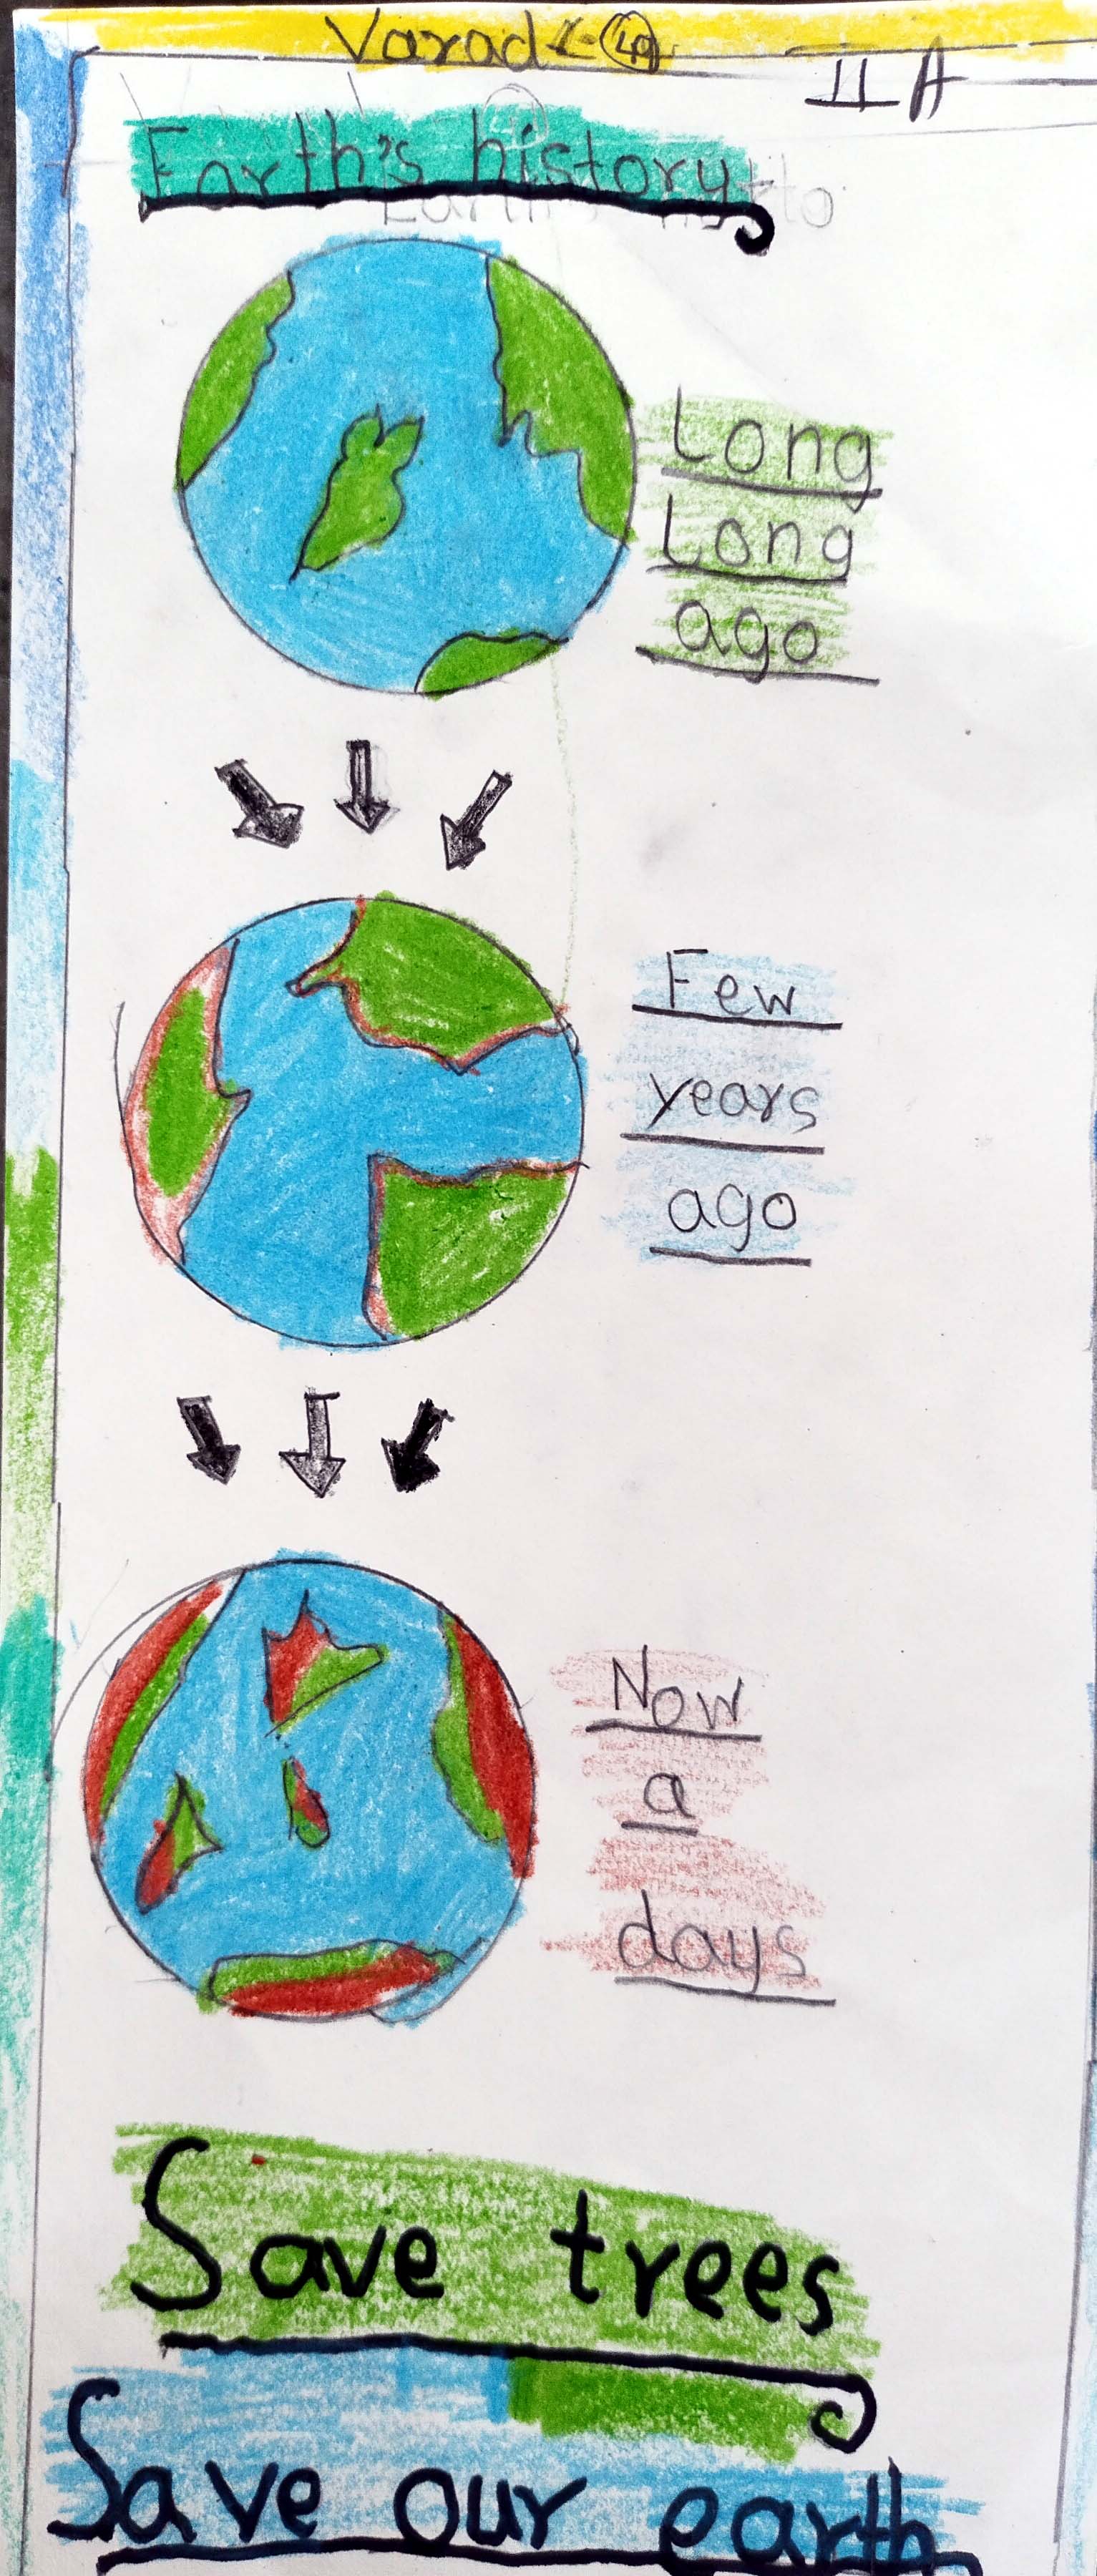 Varad
II A
Earth's history
Long
Long
ago
Few
years
ago
Now
a
days
Save trees
Save our earth